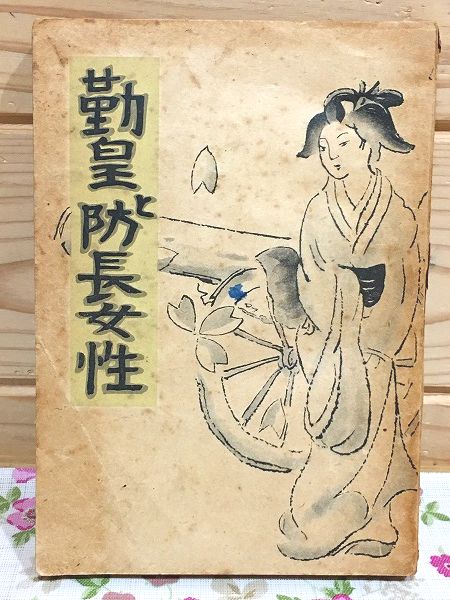 勤皇と防長女性